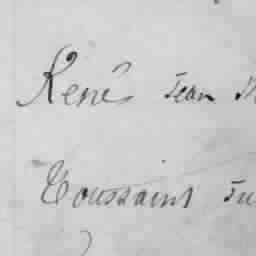 René Jean
Toussaint Ju